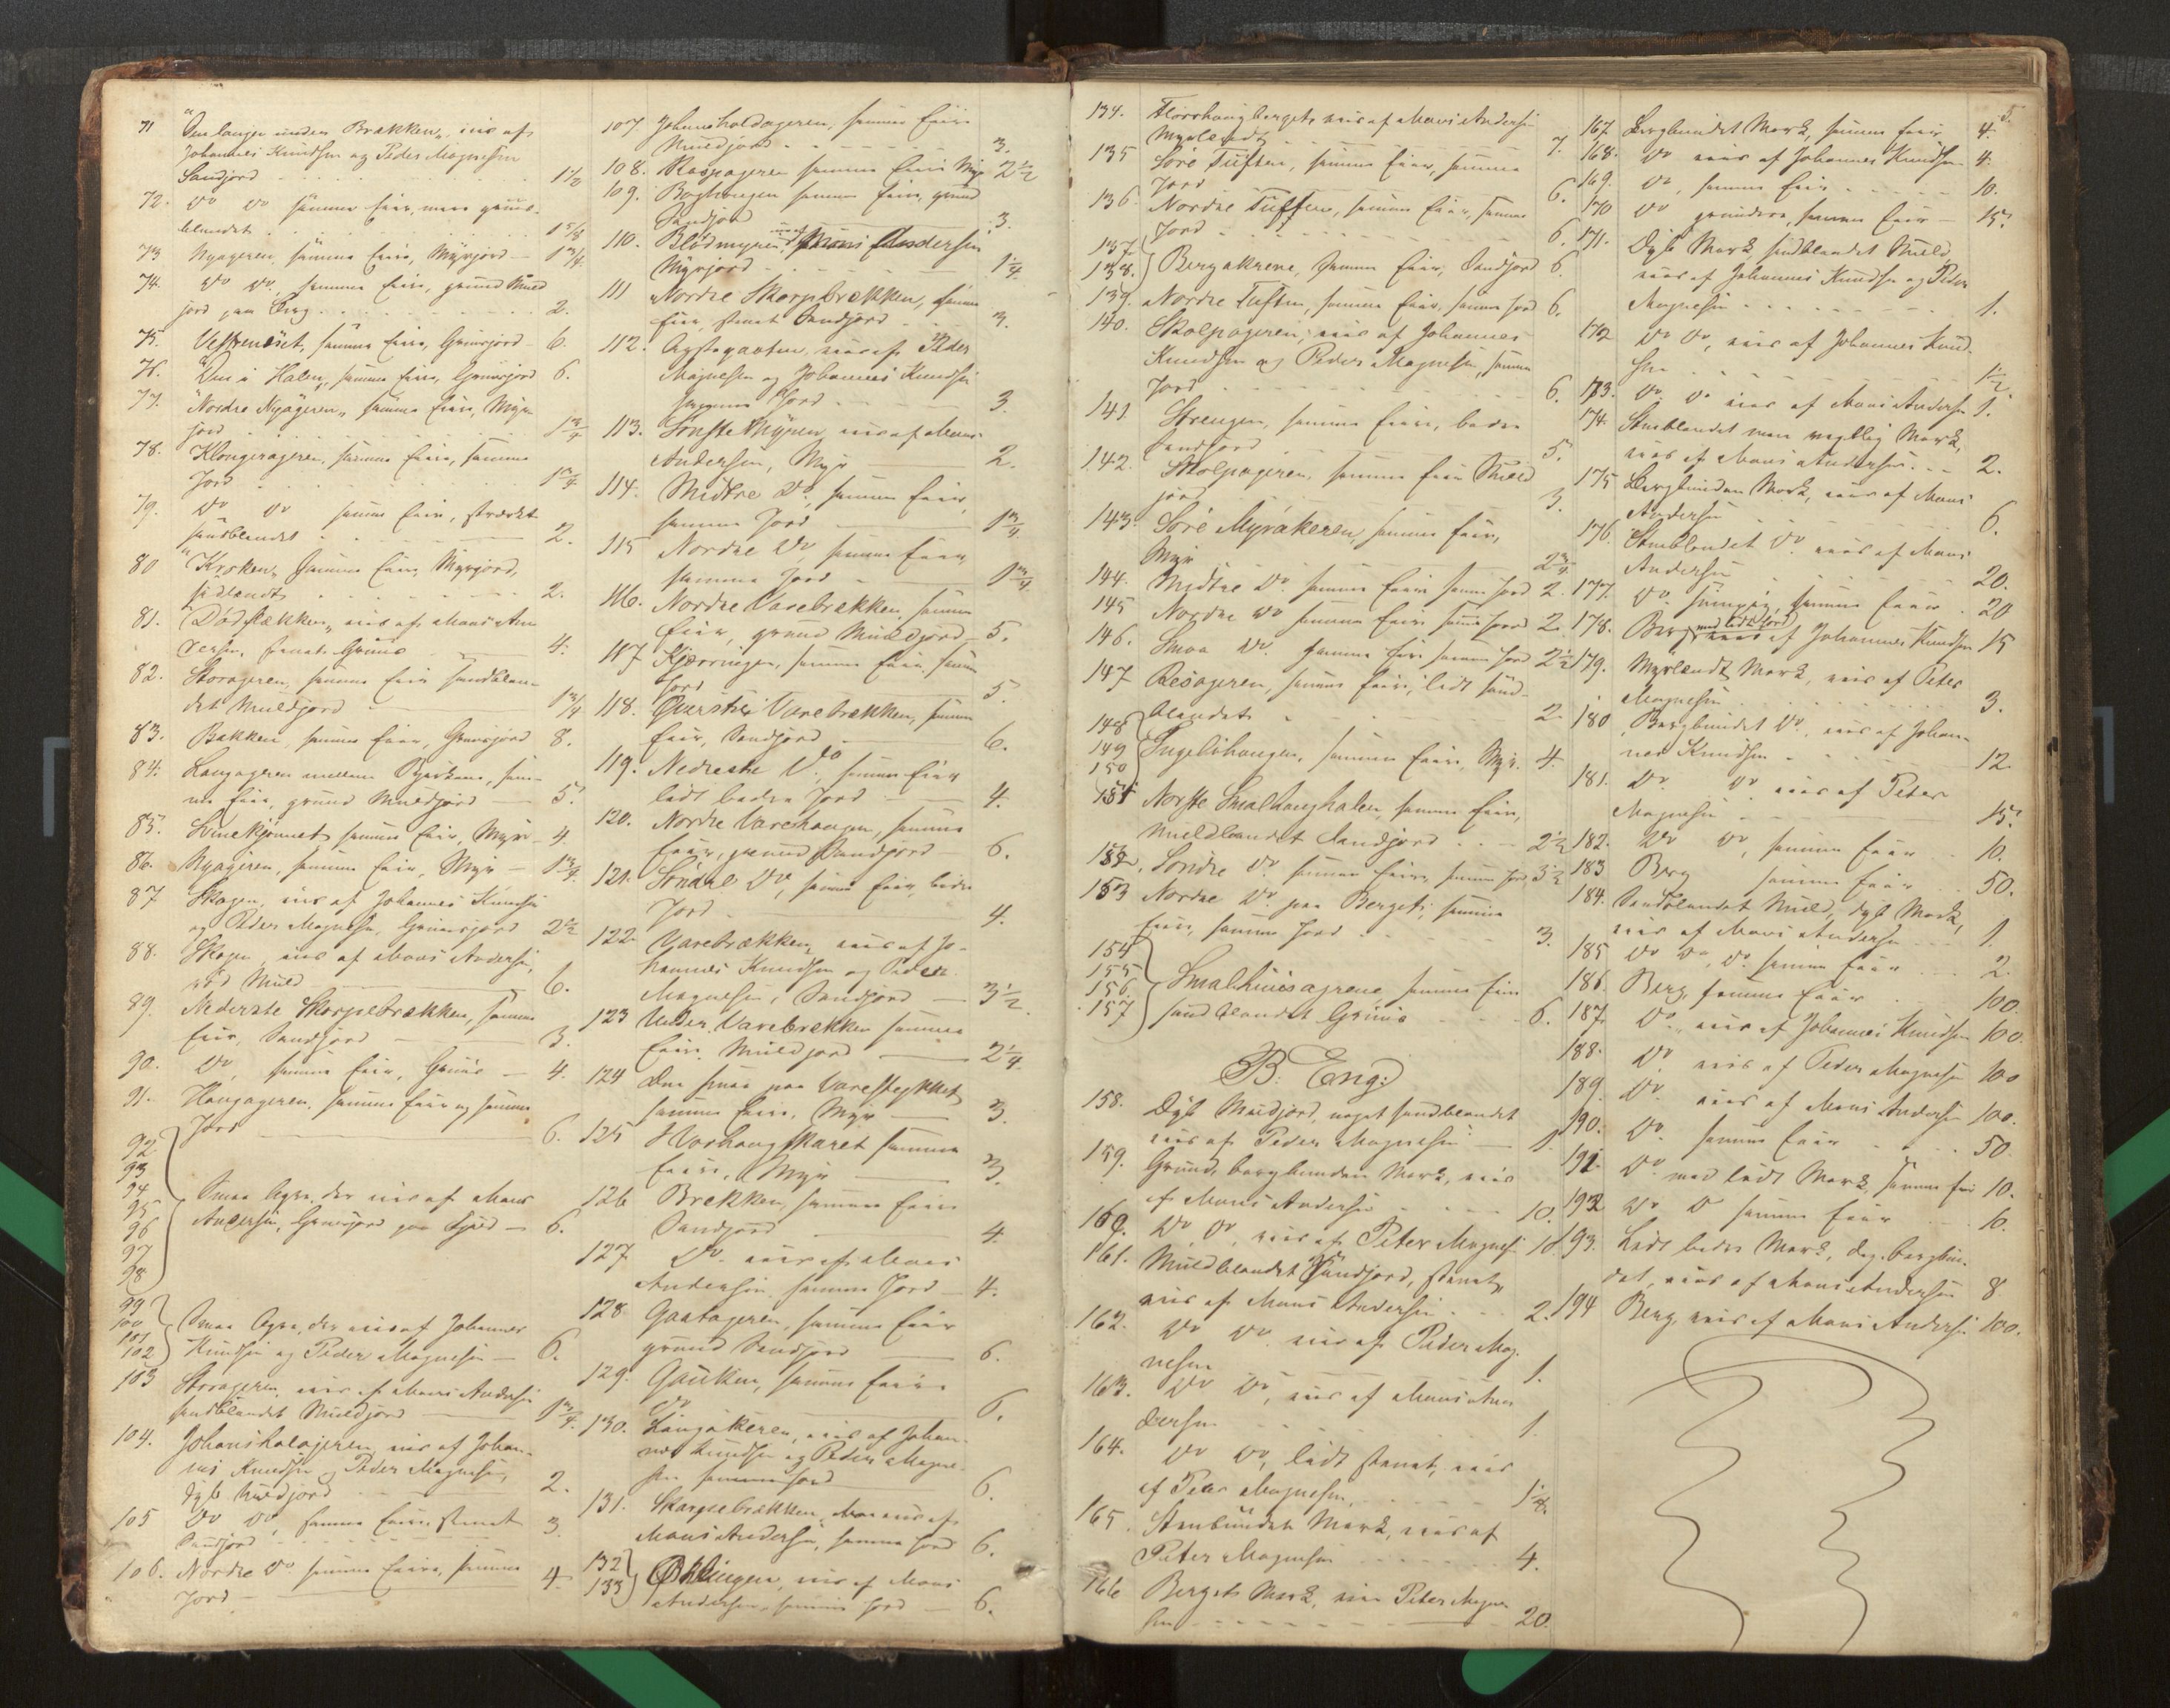 71 "Den lange under Brækken" eies af
Johannes Knudsen og Peder Magnesen
Sandjord 1 1/2
72. Do Do samme Eier, mere gruus-
blandet 1 5/8
73 Nyageren, samme Eier, Myrjord 1 3/4
74. Do Do, samme Eier, grund Muld
jord paa Berg 2.
75. Vestrenæset, samme Eier, Gruusjord 6.
76. "Den i Halen" samme Eier, Gruusjord 6.
77. "Nordre Nyageren" samme Eier, Myr-
jord 1 3/4
78. Klongerageren, samme Eier, samme
Jord 1 3/4
79. Do Do samme Eier, stærkt
sandblandet 2.
80 "Kroken" samme Eier, Myrjord,
sidlændt 2.
81. "Dødbrækken" eies af Mons An-
dersen, stenet Gruus 4.
82. Storageren, samme Eier sandblan-
det Muldjord 1 3/4
83. Bakken, samme Eier, Gruusjord 8.
84. Langageren mellem Bjerkene, sam-
me Eier, grund Muldjord 5.
85. Svinekjønnet samme Eier, Myr 4.
86. Nyageren, samme Eier, Myr 1 3/4
87 Skagen, eies af Johannes Knudsen
og Peder Magnesen, Gruusjord 2 1/2
88. Skagen eies af Mons Andersen,
rød Muld 6.
89. Nederste Skorpebrækken, samme
Eier, Sandjord 3.
90. Do, samme Eier, Gruus 4.
91. Haugageren, samme Eier og samme
Jord 6.
92
93
94
95
96
97
98
Smaa Agre, der eies af Mons
Andersen, Gruusjord paa Fjeld 6.
99
100
101
102
Smaa Agre, der eies af Johannes
Knudsen og Peder Magnesen 6.
103 Storageren, eies af Mons Andersen
sandblandet Muldjord 1 3/4
104. Johanshalageren eies af Johan-
nes Knudsen og Peder Magnesen,
dyb Muldjord 2.
105 Do Do, samme Eier, stenet
Sandjord 3
106. Nordre Do samme Eiere, samme
Jord 4
107 Johanshalageren, samme Eier
Muldjord 3.
108. Raspageren samme Eier Myr 2 1/2
109. Boghaugen samme Eier, grund
Sandjord 3.
110. Blødmyren, eies af Mons Andersen
Myrjord 1 1/4
111 Nordre Skorpbrækken, samme
Eier, stenet Sandjord 3.
112. eies af Peder
Magnesen og Johannes Knudsen
samme Jord 3.
113. Sønste Myren eies af Mons
Andersen, Myr 2.
114. Midtre Do, samme Eier,
samme Jord 1 3/4
115 Nordre Do, samme Eier,
samme Jord 1 3/4
116. Nordre Varebrækken samme
Eier, grund Muldjord 5.
117 Kjærringen, samme Eier, samme
Jord 5.
118. Øverste Varebrækken, samme
Eier, Sandjord 6.
119. Nedreste Do, samme Eier
lidt bedre Jord 4.
120. Nordre Varehaugen, samme
Eier, grund Sandjord 6.
121. Søndre Do, samme Eier, bedre
Jord 4.
122. Varebrækken, eies af Jo-
hannes Knudsen og Peder
Magnesen, Sandjord 3 1/2
123 Under Varebrækken samme
Eier, Muldjord 2 1/4
124 Den smaa paa Varestykket
samme Eier, Myr 3.
125 Horhaugskaret samme
Eier, Myr 3.
126 Brekken, samme Eier
Sandjord 4.
127. Do eies af Mons
Andersen samme Jord 4.
128. Gaatageren, samme Eier
grund Sandjord 6.
129. Gauken, samme Eier
Do 6.
130. Langakeren, eies af Johan-
nes Knudsen og Peder Magne-
sen samme Jord 6.
131. Skorpebrækken, eies af
Mons Andersen, samme Jord 6.
132
133
eies af Mons
Andersen, samme Jord 6.
5.
134. Horrhaugberget, eies af Mons Andersen
Myrlændt 7.
135 Søre Tuften, samme Eier, samme
Jord 6.
136. Nordre Tuften, samme Eier, samme
Jord 6.
137.
138.
Bergakrene, samme Eier, Sandjord 6.
139. Nordre Tuften, samme Eier, samme Jord 6.
140. Skolpageren, eies af Johannes
Knudsen og Peder Magnesen, samme
Jord 6.
141 Strengen, samme Eier, bedre
Sandjord 5.
142. Skolpageren, samme Eier Muld
jord 3.
143. Søre Myrakeren, samme Eier,
Myr 2 3/4
144. Midtre Do samme Eier samme Jord 2.
145 Nordre Do samme Eier samme Jord 2.
146. Smaa Do. samme Eier samme Jord 2 1/2
147 Resageren, samme Eier, lidt sand-
blandet 2.
148
149
150
Ingelshaugen, samme Eier, Myr. 4.
151 Norste Smalhaughalen, samme Eier,
Muldblandet Sandjord 2 1/2
152. Søndre Do. samme Eier, samme Jord 3 1/2
153 Nordre Do. paa Berget, samme
Eier, samme Jord 3.
154
155
156
157
Smalhuusagrene, samme Eier
sandblandet Gruus 6.
B. Eng:
158. Dyb Muldjord, noget sandblandet
eies af Peder Magnesen 1.
159. Grund, bergbunden Mark, eies
af Mons Andersen 10.
160. Do Do, eies af Peter Magnesen 10.
161. Muldblandet Sandjord, stenet,
eies af Mons Andersen 2.
162. Do Do eies af Peder Mag-
nesen 1.
163. Do Do, eies af Mons An-
dersen 1.
164. Do Do, lidt stenet, eies
af Peder Magnesen, 1 1/4.
165. Stenbunden Mark, eies af
Peter Magnesen 4.
166 Berget Mark, eies Peter Magne
sen 20.
167. Bergbundet Mark, samme Eier 4.
168. Do eies af Johannes Knudsen 4.
169. Do, samme Eier 10.
170 Do grundere, samme Eier 15.
171. Dyb Mark sandblandet Muld,
eies af Johannes Knudsen og Peder
Magnesen 1.
172 Do Do, eies af Johannes Knud-
sen 1 1/2
173. Do Do eies af Mons Andersen 1.
174. Stenblandet men Mark,
eies af Mons Andersen 2.
175 Bergbunden Mark, eies af Mons
Andersen 6.
176. Stenblandet Do. eies af Mons
Andersen 20.
177. Do samme Eier 20
178. Berg med lidt Jord eies af Johannes Knudsen 15
179. Myrlændt Mark, eies af Peter
Magnesen 3.
180 Bergbundet Do, eies af Johan-
nes Knudsen 12.
181. Do Do eies af Peter
Magnesen 15.
182. Do Do, samme Eier 10.
183 Berg samme Eier 50.
184. Sandblandet Muld, dyb Mark,
eies af Mons Andersen 1.
185 Do Do, Do samme Eier 2.
186. Berg, samme Eier 100.
187. Do, eies af Johannes Knudsen 100.
188. Do eies af Peder Magnesen 100
189. Do. eies af Mons Andersen 100.
190. Do. samme Eier 50
191. Do med lidt Mark, samme Eier 10.
192 Do D samme Eier 10.
193. Lidt bedre Mark, dog bergbun-
det, eies af Mons Andersen 8.
194 Berg, eies af Mons Andersen 100.